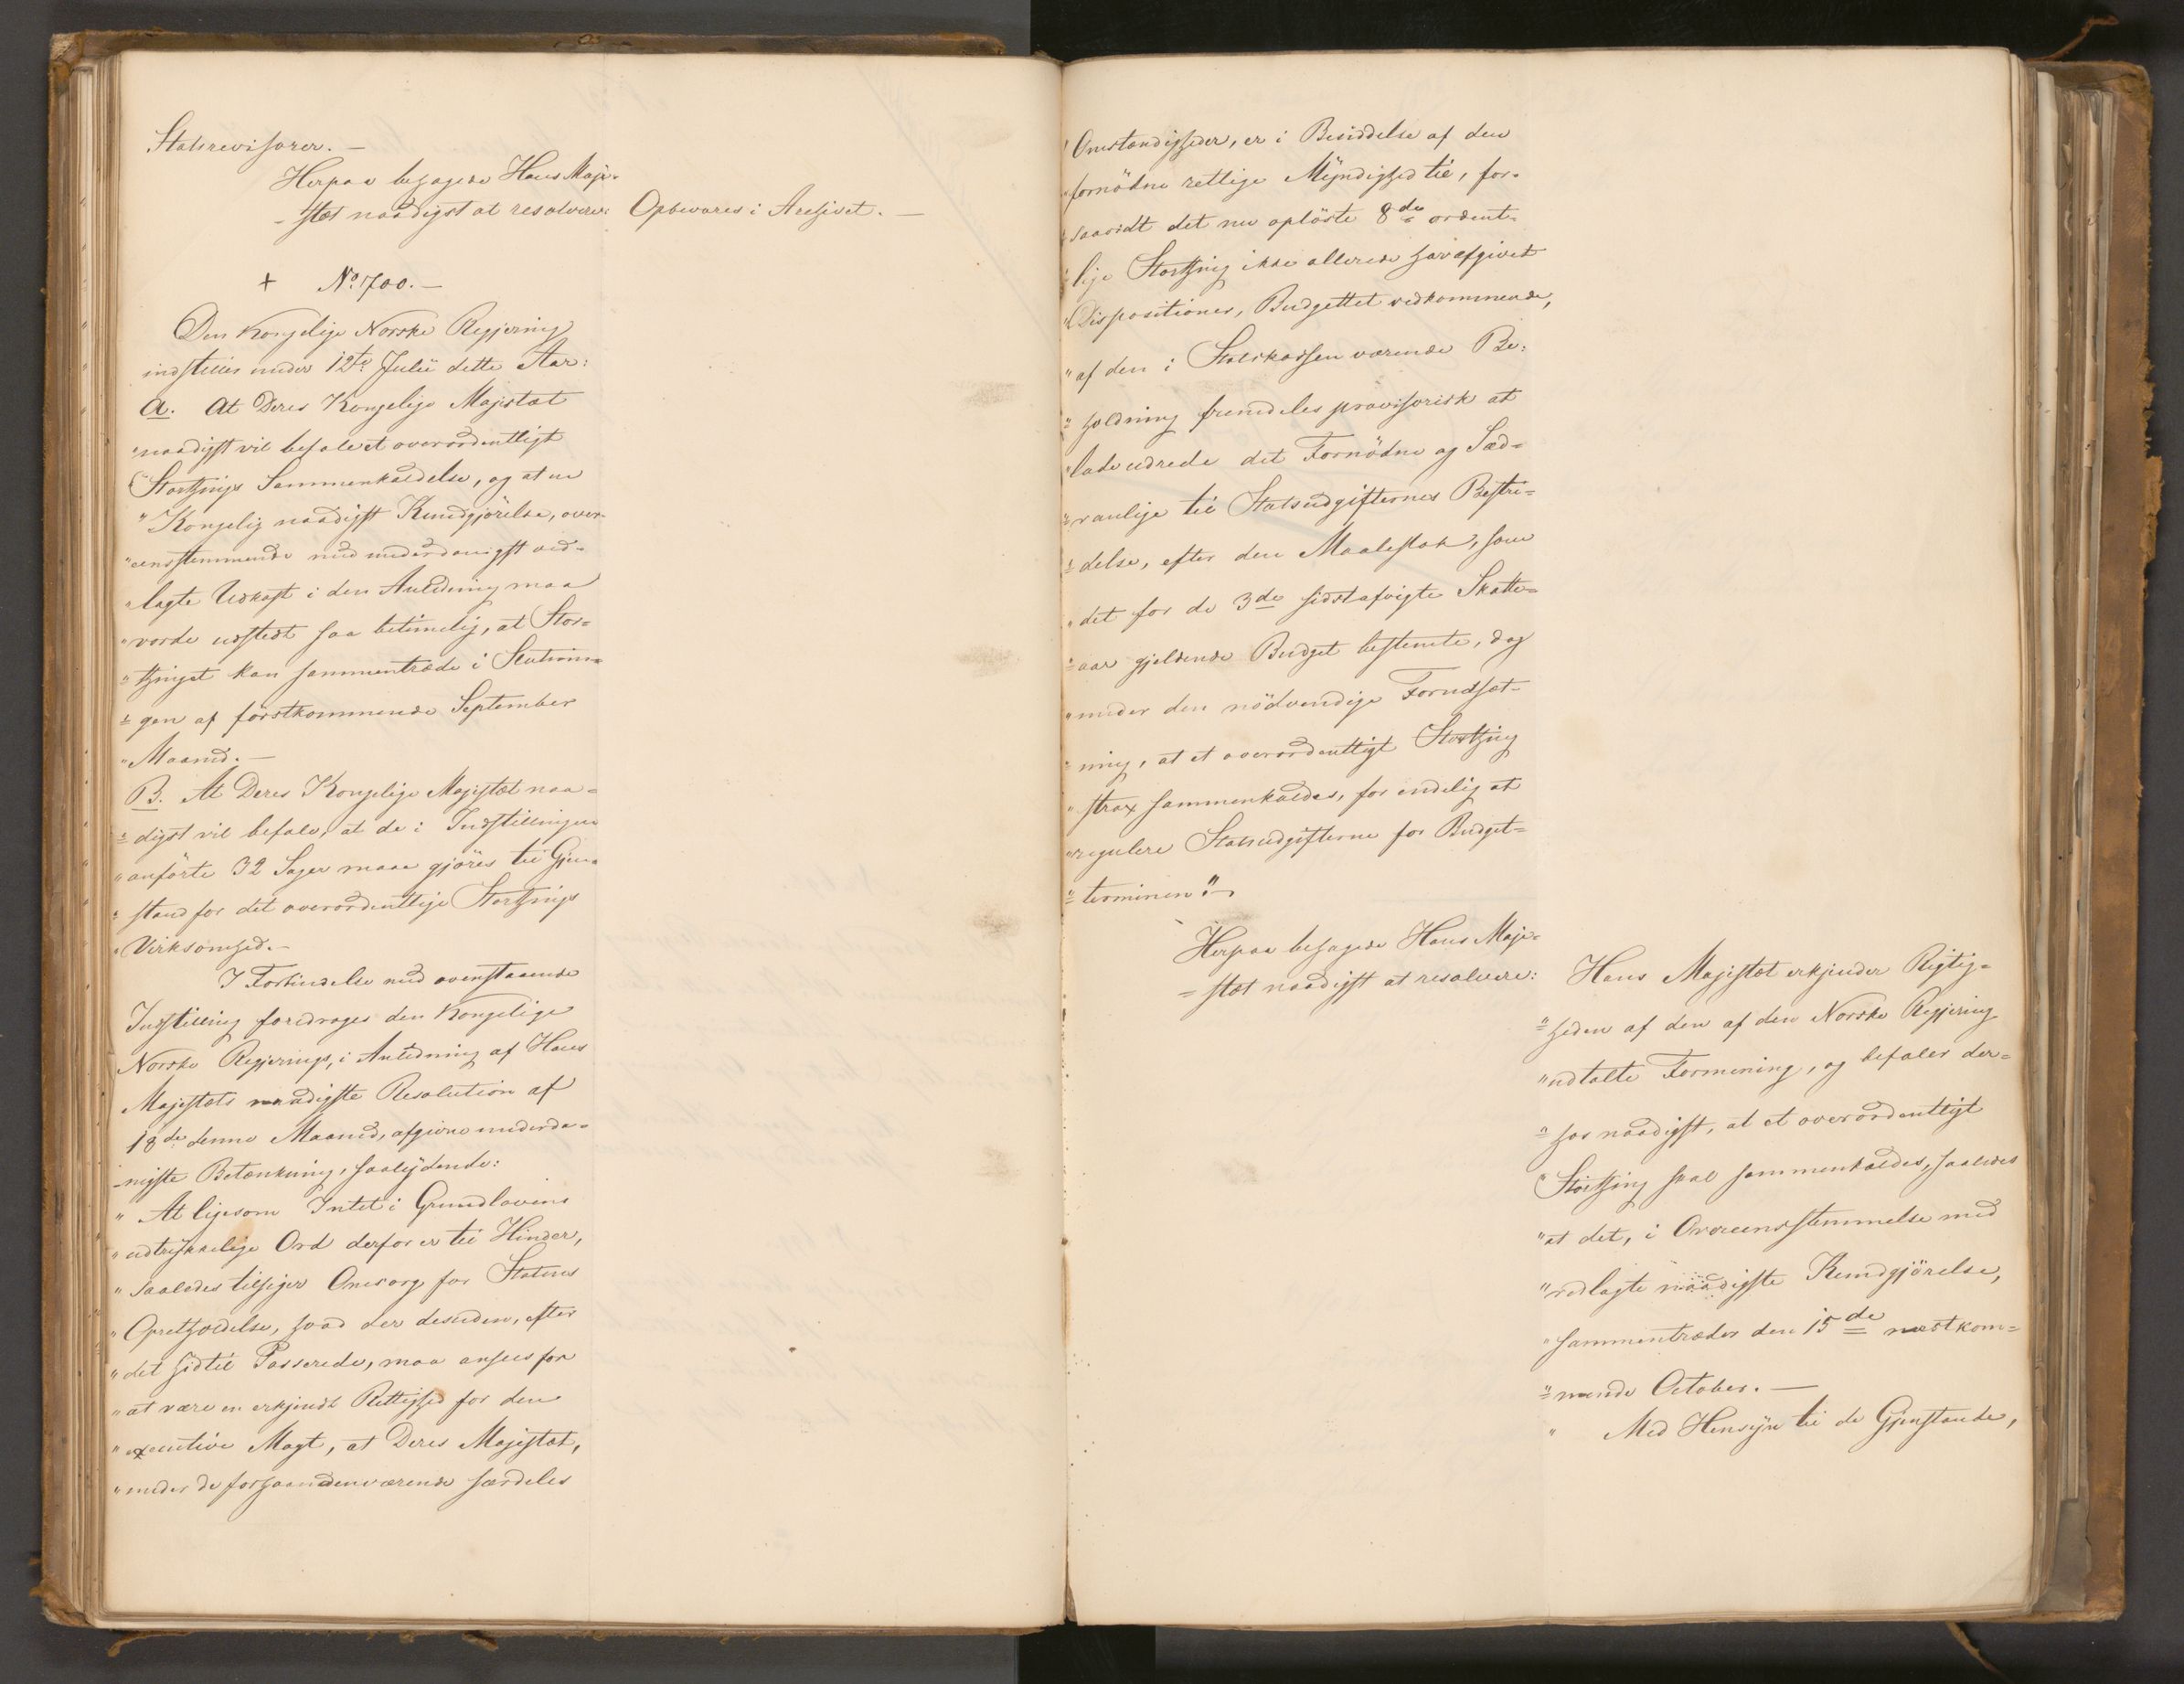 Statsrevisorer. —
Herpaa behagede Hans Maje-
-stæt naadigst at resolvere: Opbevares i Archivet. —
+ No 700. —
Den Kongelige Norske Regjering
indstiller under 12te Julii dette Aar:
A. At Deres Kongelige Majestæt
"naadigst vil befale et overordentligt
"Storthings Sammenkaldelse, og at en
"Kongelig naadigst Kundgjörelse, over-
"eensstemmende med underdanigst ved-
"lagte Udkast i den Anledning maa
"vorde udstedt saa betimelig, at Stor-
"thinget kan sammentræde i Slutnin-
"gen af förstkommende September
"Maaned. —
B. At Deres Kongelige Majestæt naa-
"digst vil befale, at de i Indstillingen
"anförte 32 Sager maae gjöres til Gjen-
"stand for det overordentlige Storthings
"Virksomhed. —
I Forbindelse med ovenstaaende
Indstilling foredrages den Kongelige
Norske Regjerings, i Anledning af Hans
Majestæts naadigste Resolution af
18de denne Maaned, afgivne underda-
-nigste Betænkning, saalydende:
"At ligesom Intet i Grundlovens
"udtrykkelige Ord derfor er til Hinder,
"saaledes tilsiger Omsorg for Statens
"Opretholdelse, hvad der desuden, efter
"det hidtil Passerede, maa ansees for
"at være en erkjendt Rettighed for den
"executive Magt, at Deres Majestæt,
"under de forhaandenværende særdeles
"Omstændigheder, er i Besiddelse af den
"fornödne retlige Myndighed til, for-
"saavidt det nu oplöste 8de ordent-
"lige Storthing ikke allerede har afgivet
"Dispositioner, Budgettet vedkommende,
"af den i Statskassen værende Be-
"holdning fremdeles provisorisk at
"lade udrede det Fornödne og Sæd-
"vanlige til Statsudgifternes Bestri-
"delse, efter den Maalestok, som
"det for de 3de sidstafvigte Skatte-
"aar gjeldende Budget bestemte, dog
"under den nödvendige Forudsæt-
"ning, at et overordentligt Storthing
"strax sammenkaldes, for endelig at
"regulere Statsudgifterne for Budget-
"terminen". —
Herpaa behagede Hans Maje-
-stæt naadigst at resolvere: Hans Majestæt erkjender Rigtig-
"heden af den af den Norske Regjering
"udtalte Formening, og befaler der-
"for naadigst, at et overordentligt
"Storthing skal sammenkaldes, saaledes
"at det, i Overeensstemmelse med
"vedlagte naadigste Kundgjörelse,
"sammentræder den 15de næstkom-
"mende October. —
" Med Hensyn til de Gjenstande,